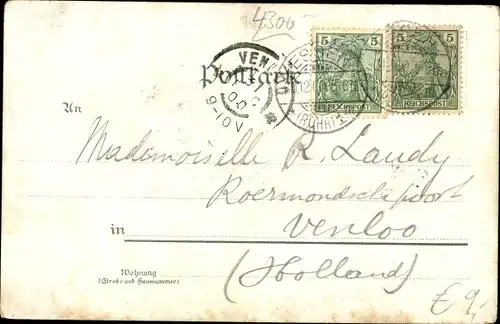 4300
5 5
REICHSPOST REICHSPOST
VENLO
9-10V
(RUHR)
Postkarte
An
Mademoiselle R. Landy
Roermondschepoort
in Venloo
(Holland)
Wohnung
(Straße und Hausnummer)
€ 9,-